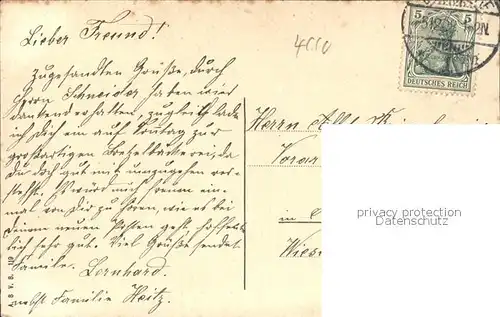 Lieber Freund!
4000
5 5
DEUTSCHES REICH
Zugesandten Grüße, durch
Herrn Schneider haben wir
dankend erhalten, zugleich lade
ich Dich ein auf Sonntag zur
großartigen Bretzelbackerei, da
Du doch gut mit umzugehen ver-
stehst. Es würd mich freuen ein-
mal von Dir zu hören, wie es bei
Deinem neuen Posten geht, hoffent-
lich sehr gut. Viel Grüße sendet
Familie. Lernhard.
nebst Familie Heitz.
Herrn
Vorar
in
Wies
privacy protection
Datenschutz